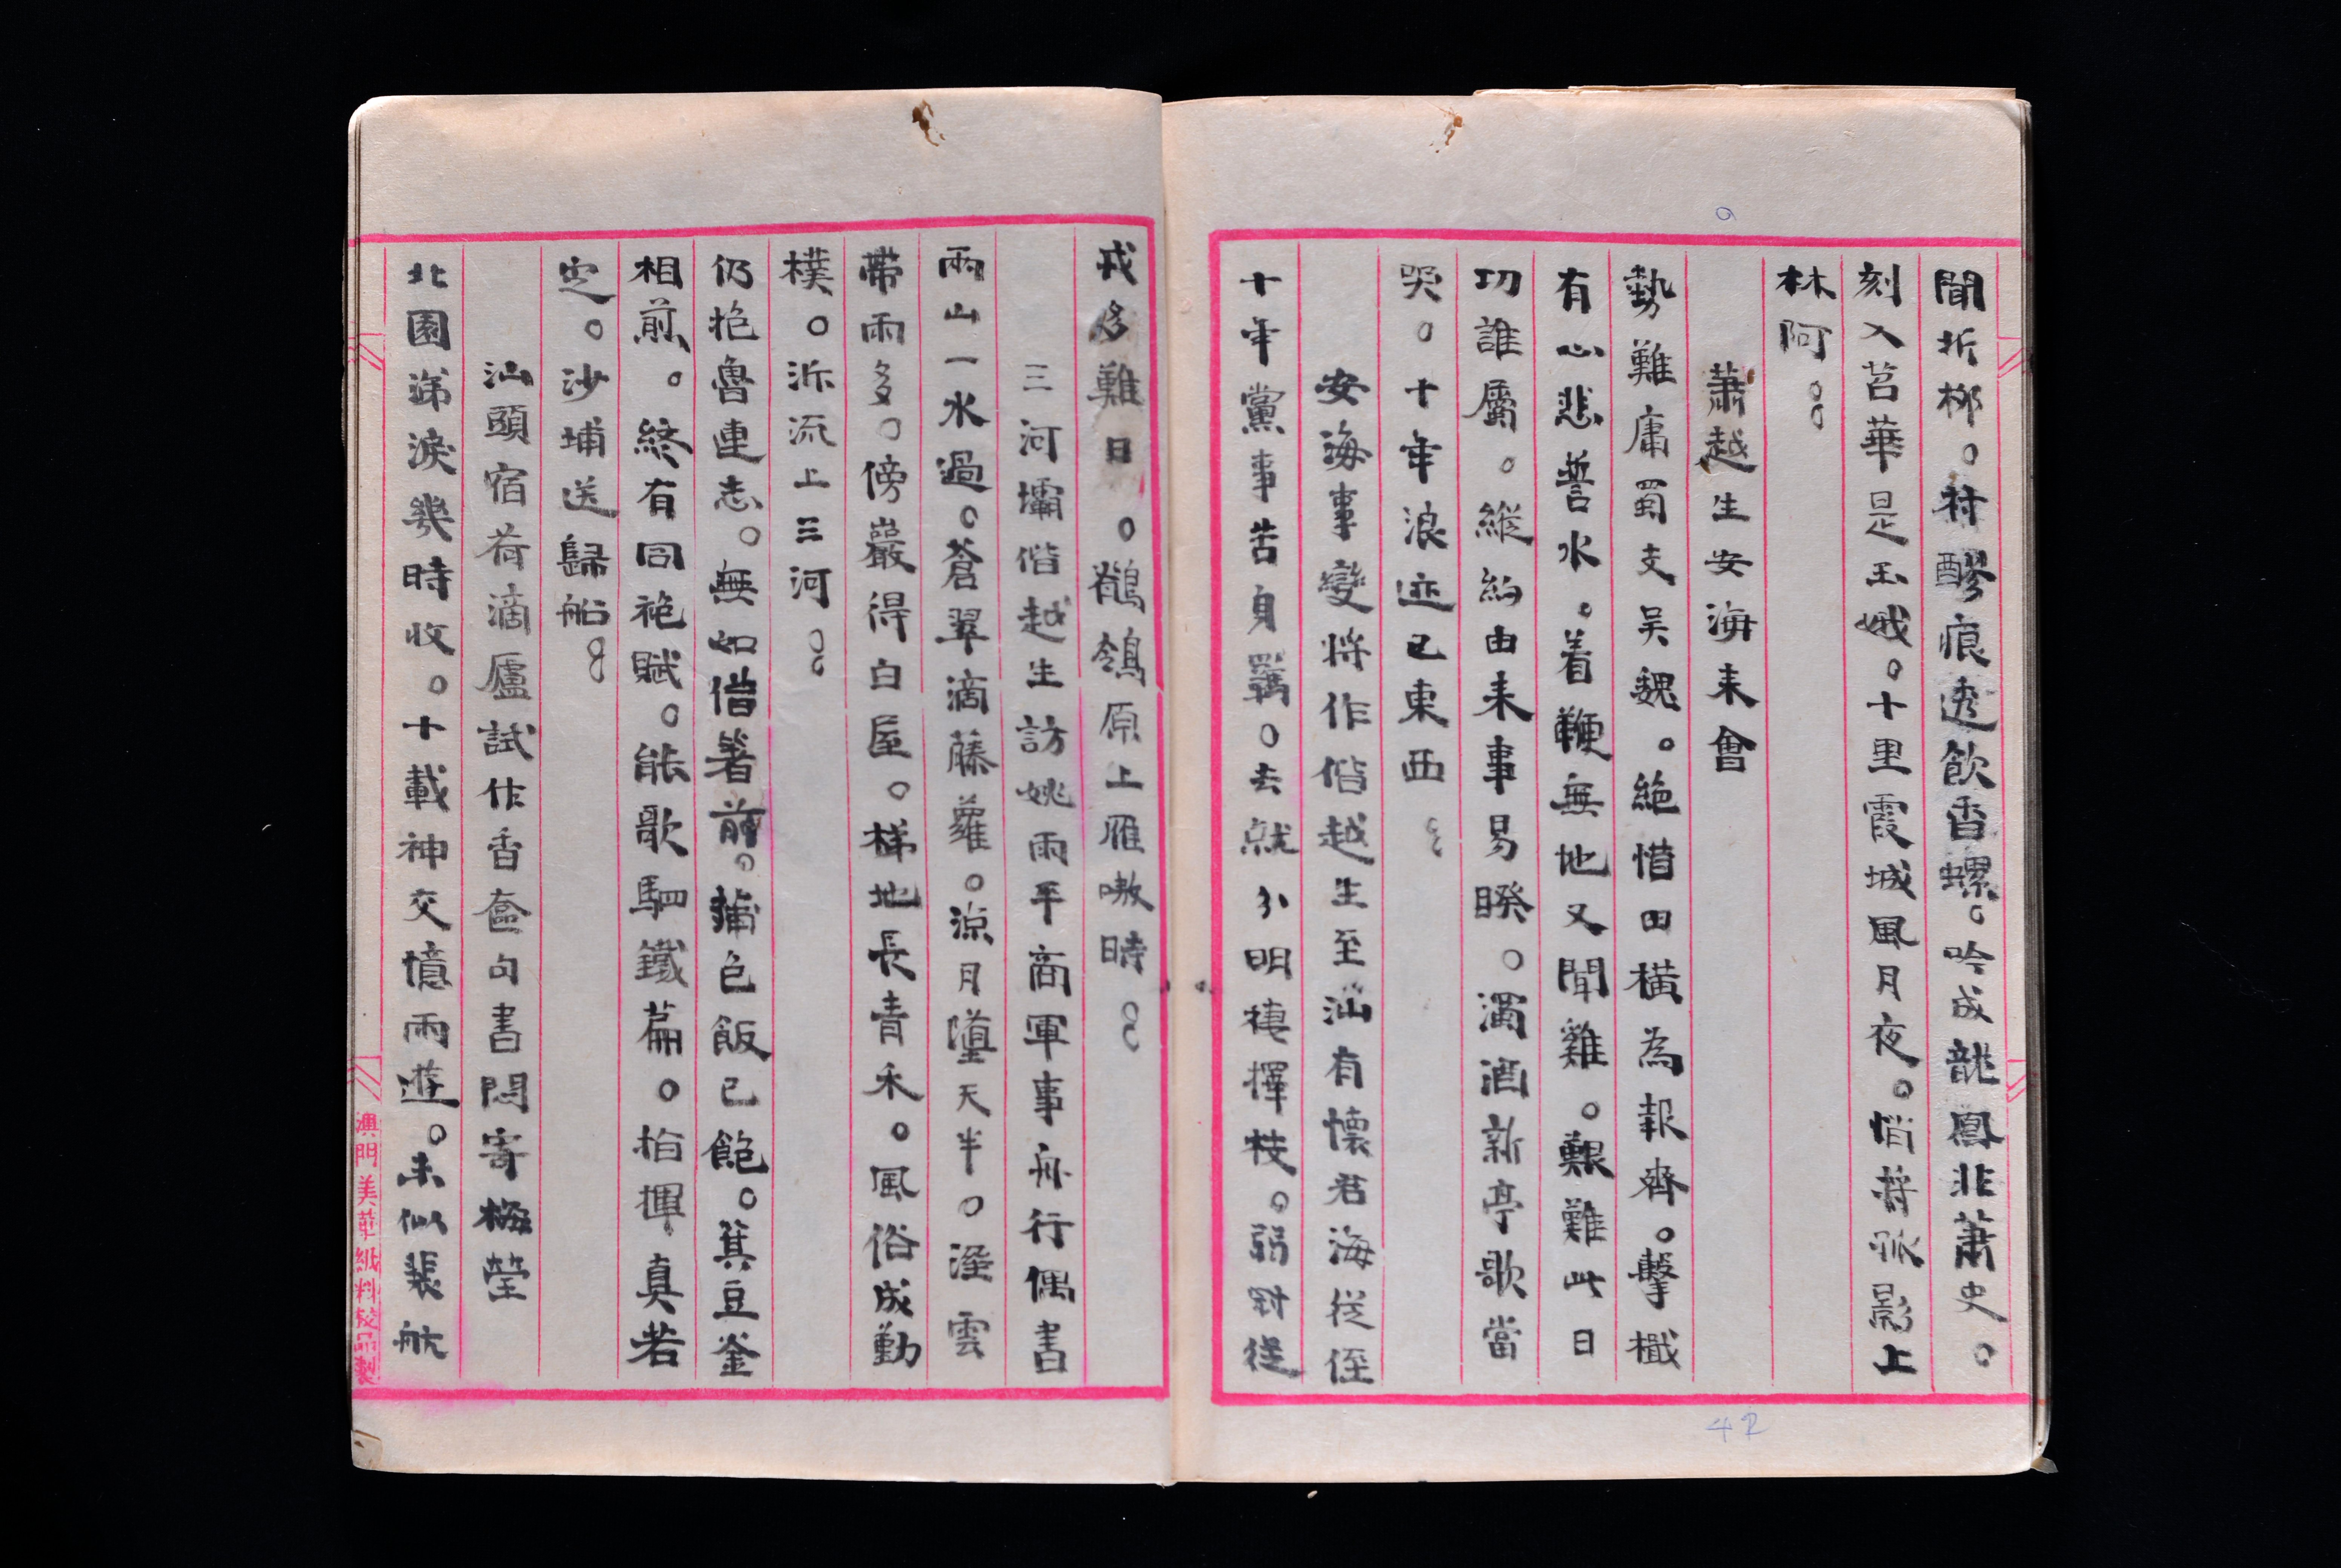 聞折柳。村醪痕透飲香螺。吟成龍鳳非蕭史。
刻入苕華是玉娥。十里霞城風月夜。惱將狀影上
林阿。。
蕭越生安海来會
勢難庸蜀支吳魏。絕惜田橫為報齊。擊檝
有心悲誓水。着鞭無地又聞雞。艱難此日
功誰屬。縱約由来事易暌。濁酒新亭歌當
哭。十年浪迹已東西。。
安海事變將作偕越生至汕有懷君海從侄
十年黨事苦身羈。去就分明棲擇枝。弱對從
戎多難日。鶺鴒原上雁嗷時。。
三河壩偕越生訪姚雨平商軍事舟行偶書
兩山一水過。蒼翠滴藤蘿。涼月墮天半。溼雲
帶雨多。傍巖得白屋。梯地長青禾。風俗成勤
樸。泝流上三河。。
仍抱魯連志。無如借箸前。蒲包飯已飽。萁豆釜
相煎。終有同袍賦。能歌駟鐵篇。指揮真若
定。沙埔送歸船。。
汕頭宿荷滴廬試作香奩句書悶寄梅瑩
北園涕淚幾時收。十載神交憶雨遊。未似裴航
澳門美華紙料校品製
42